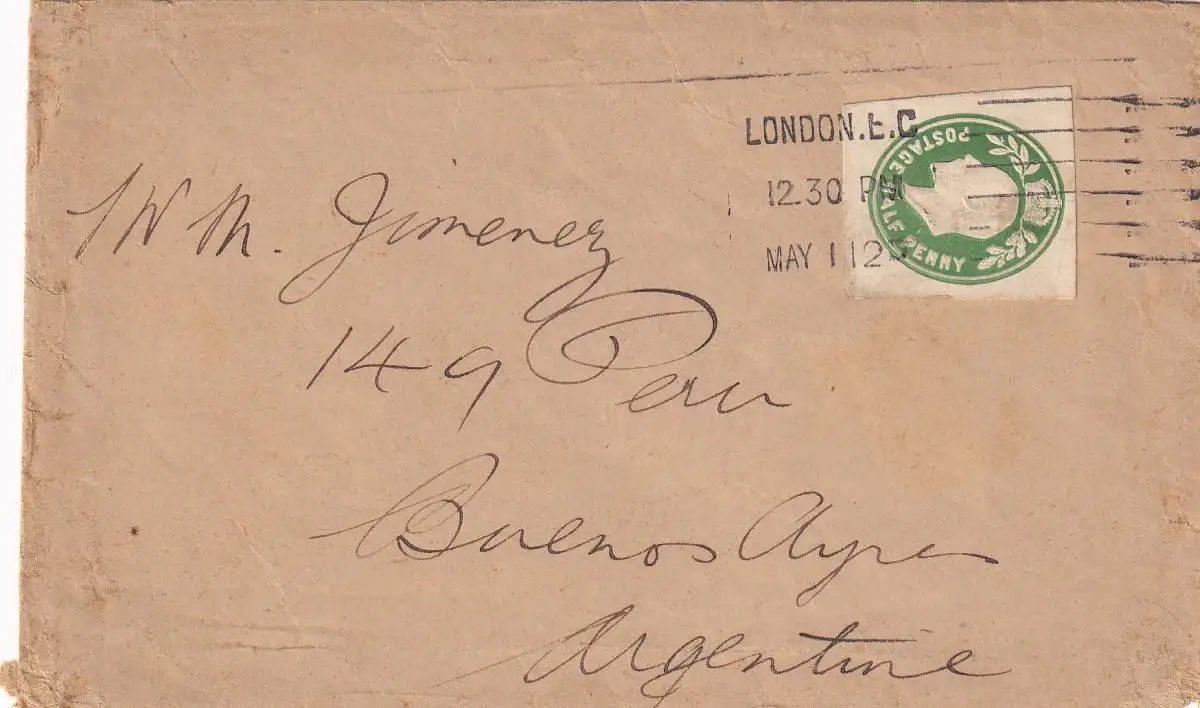 LONDON.E.C
12.30 PM
MAY 1 12
POSTAGE
HALF PENNY
W M. Jimenez
149 Peru
Buenos Ayres
Argentine